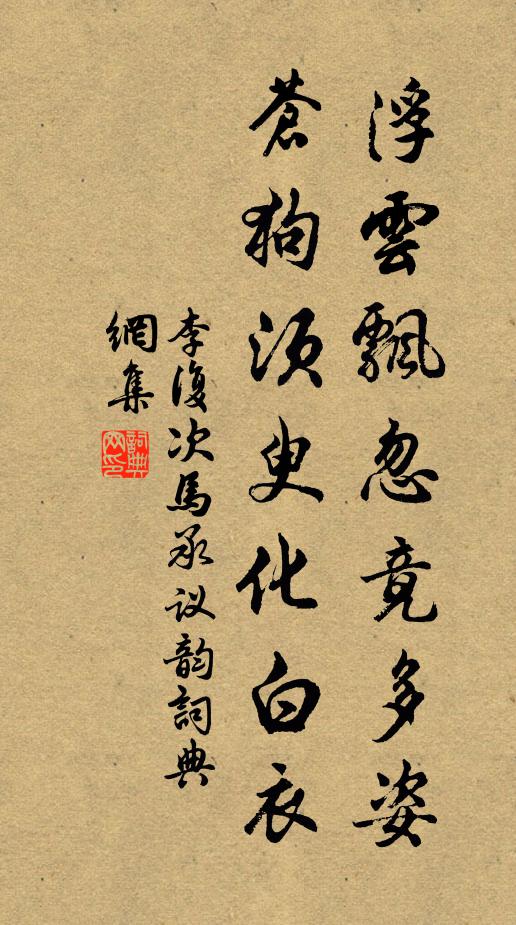 浮雲飄忽竟多姿
蒼狗須臾化白衣
李復次馬承议韵詞典
網集
詞典
网印